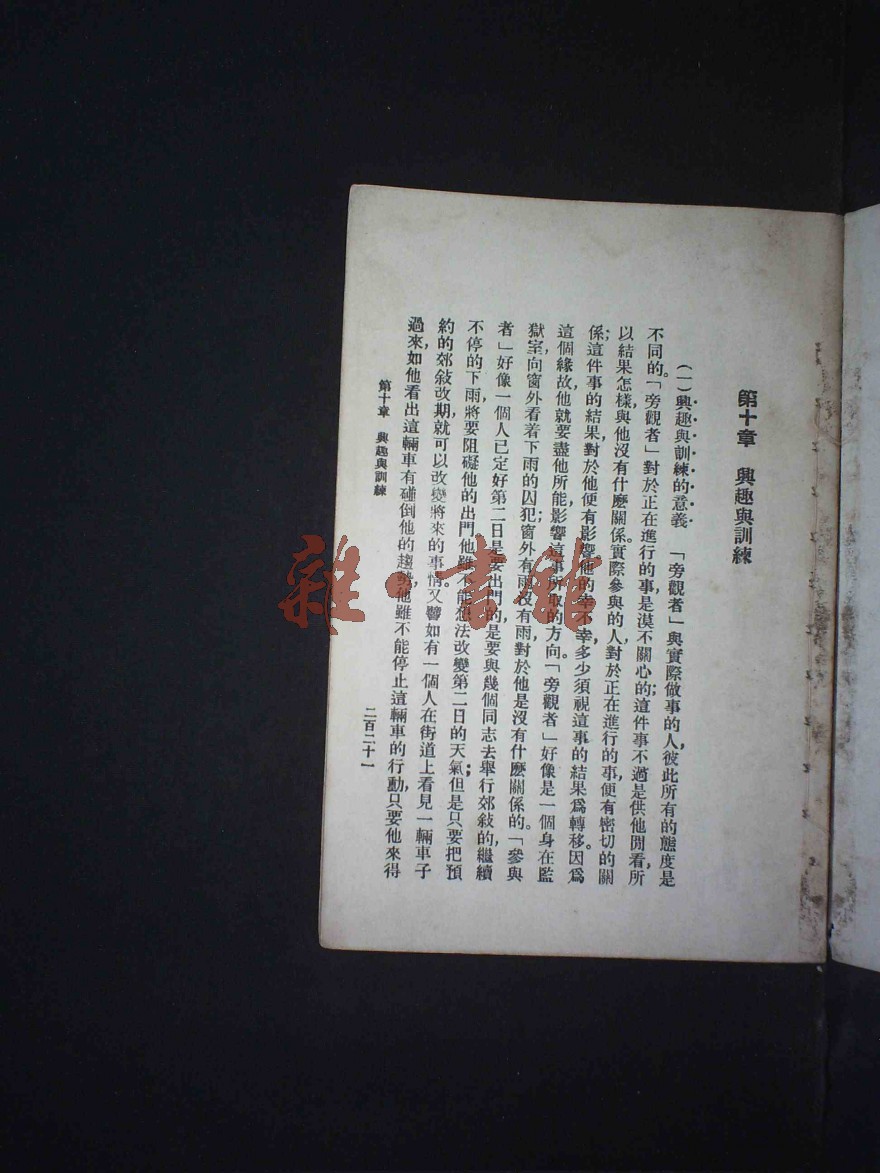 第十章　興趣與訓練
(一)興趣與訓練的意義　「旁觀者」與實際做事的人,彼此所有的態度是
不同的。「旁觀者」對於正在進行的事是漠不關心的;這件事不過是供他閒看,所
以結果怎樣,與他沒有什麼關係。實際參與的人,對於正在進行的事,便有密切的關
係;這件事的結果,對於他便有影響。他的幸不幸,多少須視這事的結果爲轉移。因爲
這個緣故,他就要盡他所能影響這事所取的方向。「旁觀者」好像是一個身在監
獄室向窗外看着下雨的囚犯;窗外有雨沒有雨,對於他是沒有什麼關係的。「參與
者」好像一個人已定好第二日是要出門的,是要與幾個同志去舉行郊敍的,繼續
不停的下雨,將要阻礙他的出門。他雖不能想法改變第二日的天氣;但是只要把預
約的郊敍改期,就可以改變將來的事情。又譬如有一個人在街道上看見一輛車子
過來,如他看出這輛車有碰倒他的趨勢,他雖不能停止這輛車的行動,只要他來得
第十章　興趣與訓練
二百二十一
雜·書館